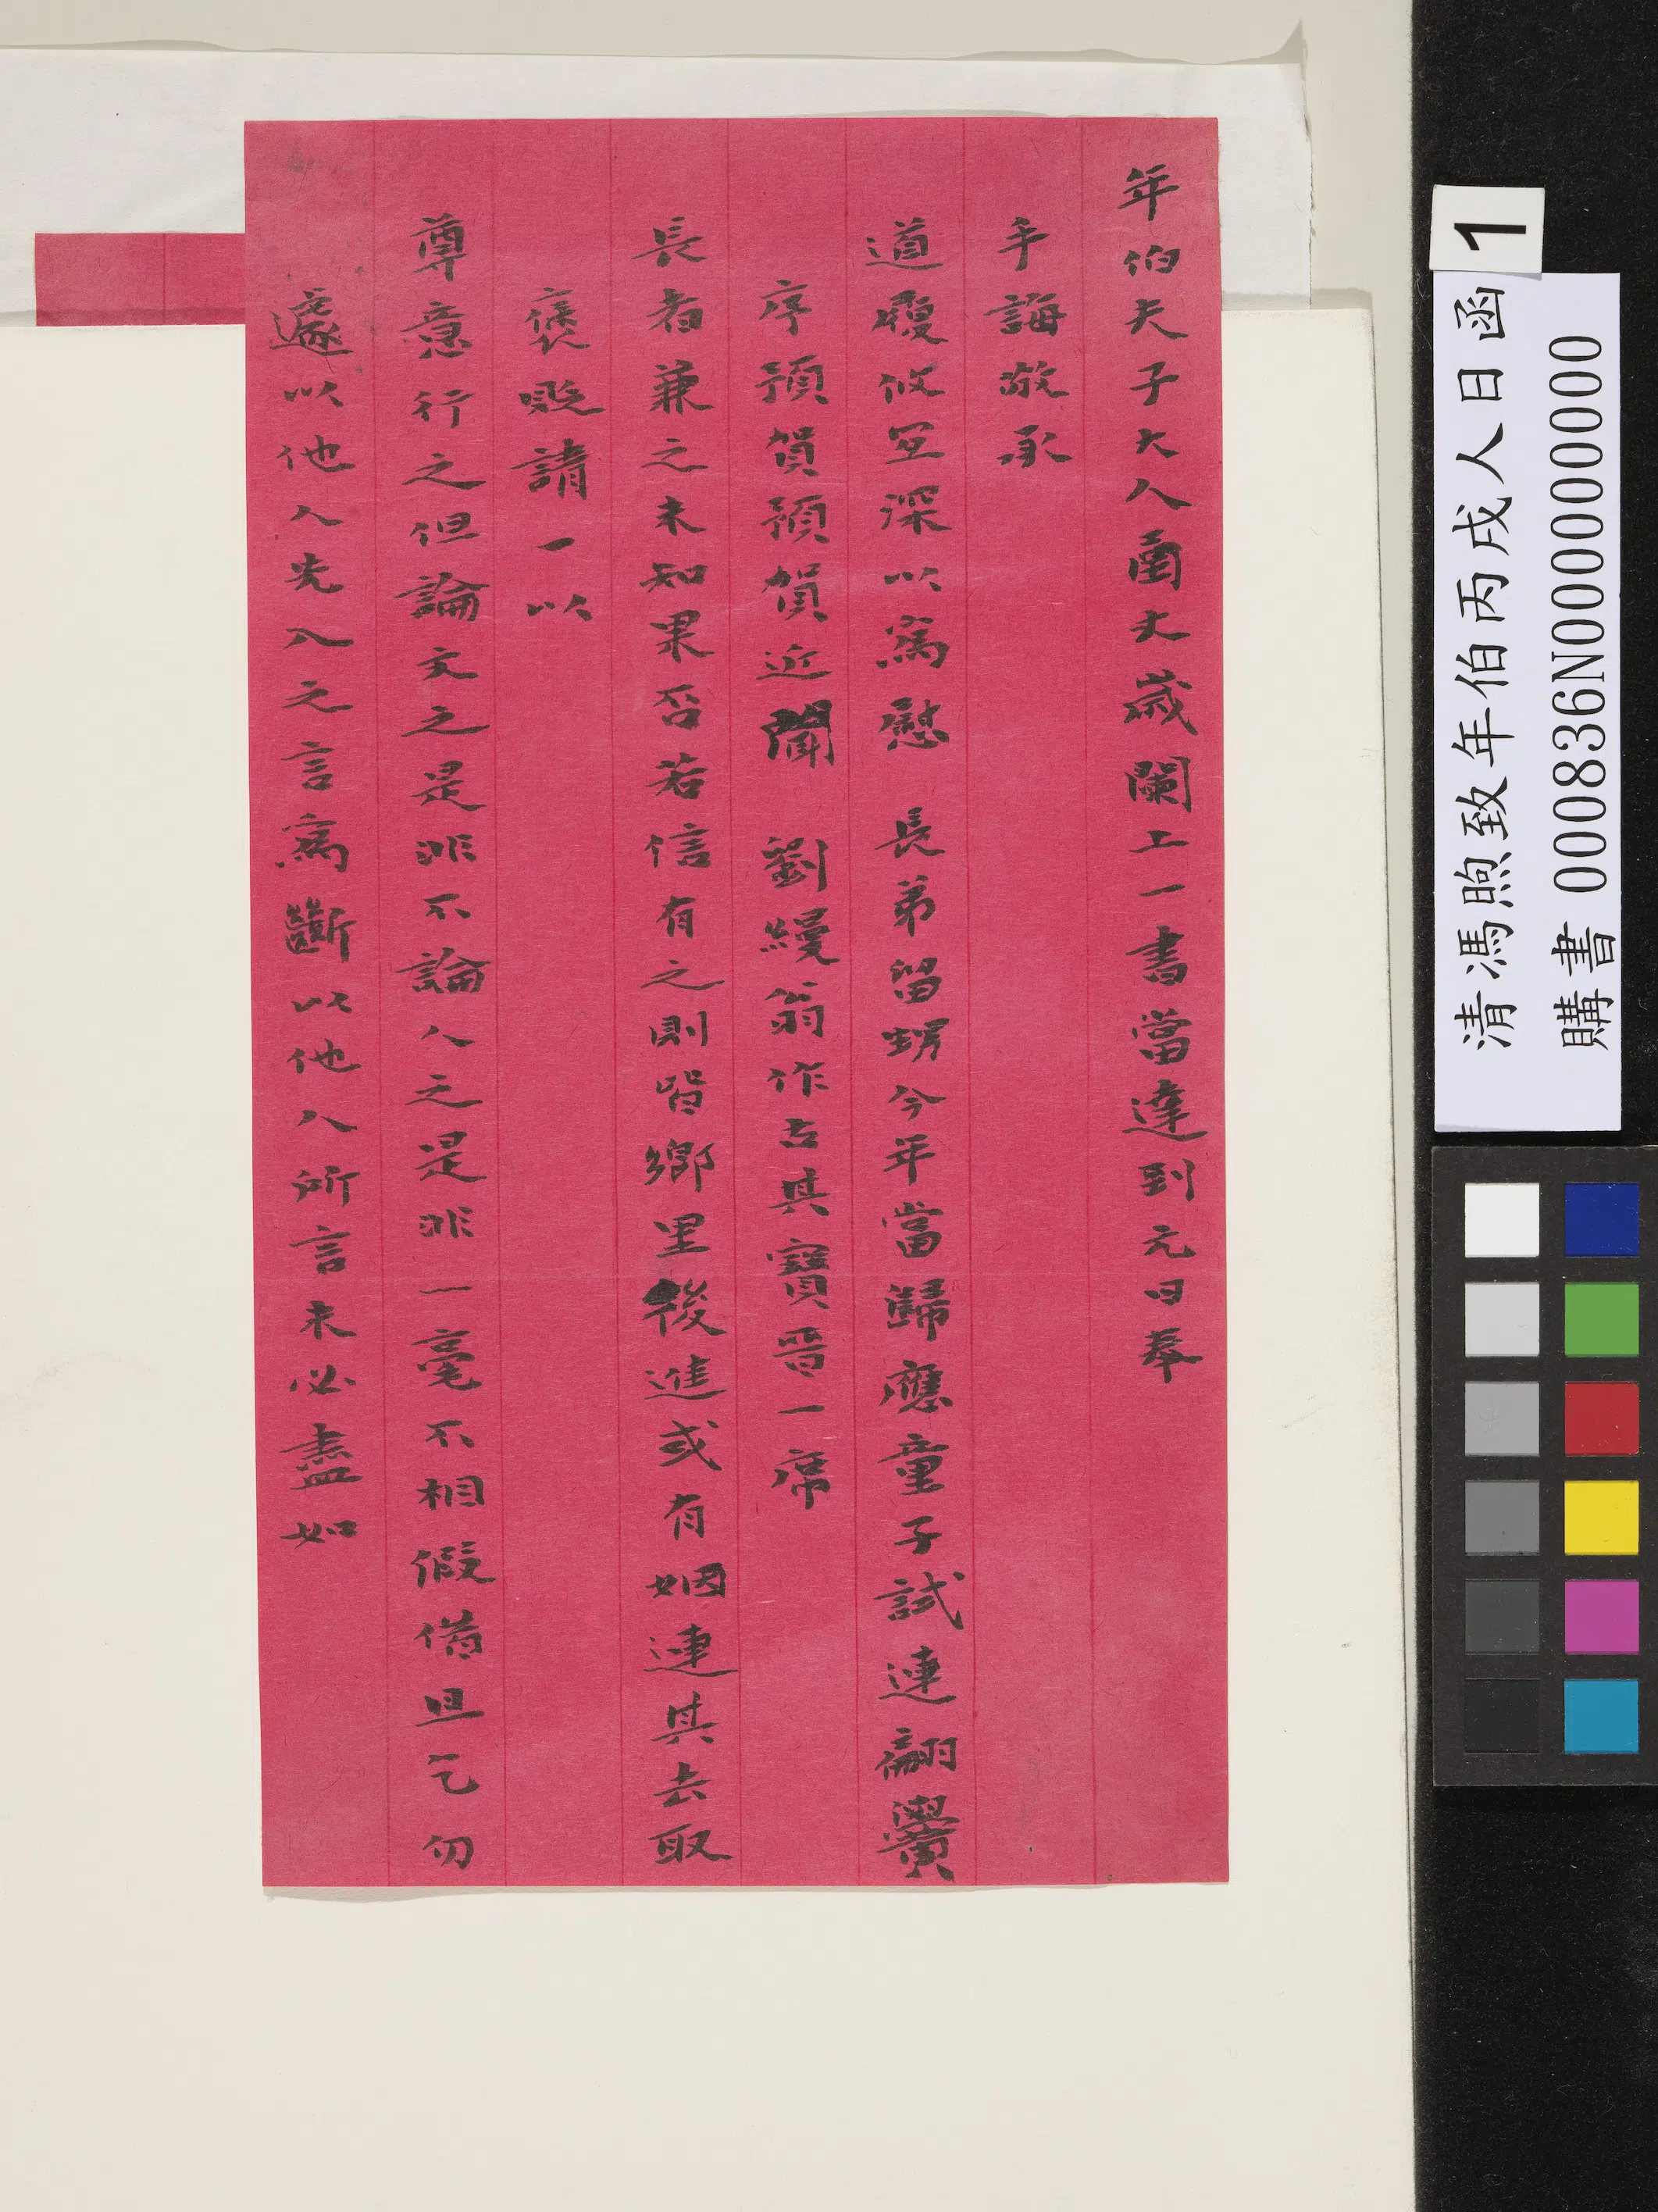 年伯夫子大人圅丈歲闌上一書當達到元日奉
手誨敬承
道履攸宜深以為慰 長弟留甥今年當歸應童子試連翩黌
序預賀預賀近聞 劉縵翁作古其寶晋一席
長者兼之未知果否若信有之則皆鄉里後進或有姻連其去取
褒貶請一以
尊意行之但論文之是非不論人之是非一毫不相假借且乞勿
遽以他人先入之言為斷以他人所言未必盡如
1
清馮煦致年伯丙戌人日函
購書 000836N000000000